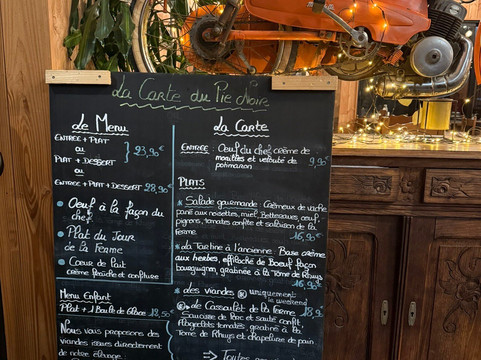 La Carte du Pie Noir
Le Menu
ENTREE + PLAT
ou
PLAT + DESSERT
23,90€
ou
ENTREE + PLAT + DESSERT 28,90€
Oeuf à la façon du
chef
Plat du Jour
de la Ferme
Coeur de lait
crème fraîche et confiture
Menu Enfant
Plat + 1 Boule de Glace 13,50€
Nous vous proposons des
viandes issues directement
de notre élevage
La Carte
ENTREE : Oeuf du chef, crème de
morilles et velouté de
potimarron
9,90€
PLATS
Salade gourmande : Crémeux de vache
pané aux noisettes, miel, Betteraves, oeuf,
pignons, tomates confite et salaison de la
ferme
16,90€
La Tartine à l'ancienne : Base crème
aux herbes, effiloché de Boeuf façon
bourguignon, gratinée à la Tome de Rhuys
16,90€
Les viandes uniquement
le weekend
Le Cassoulet de la ferme 18,90€
Saucisse de lard et sauté confit,
Flageolets tomatés, gratiné à la
Tome de Rhuys et chapelure de pain
⇒ Toutes